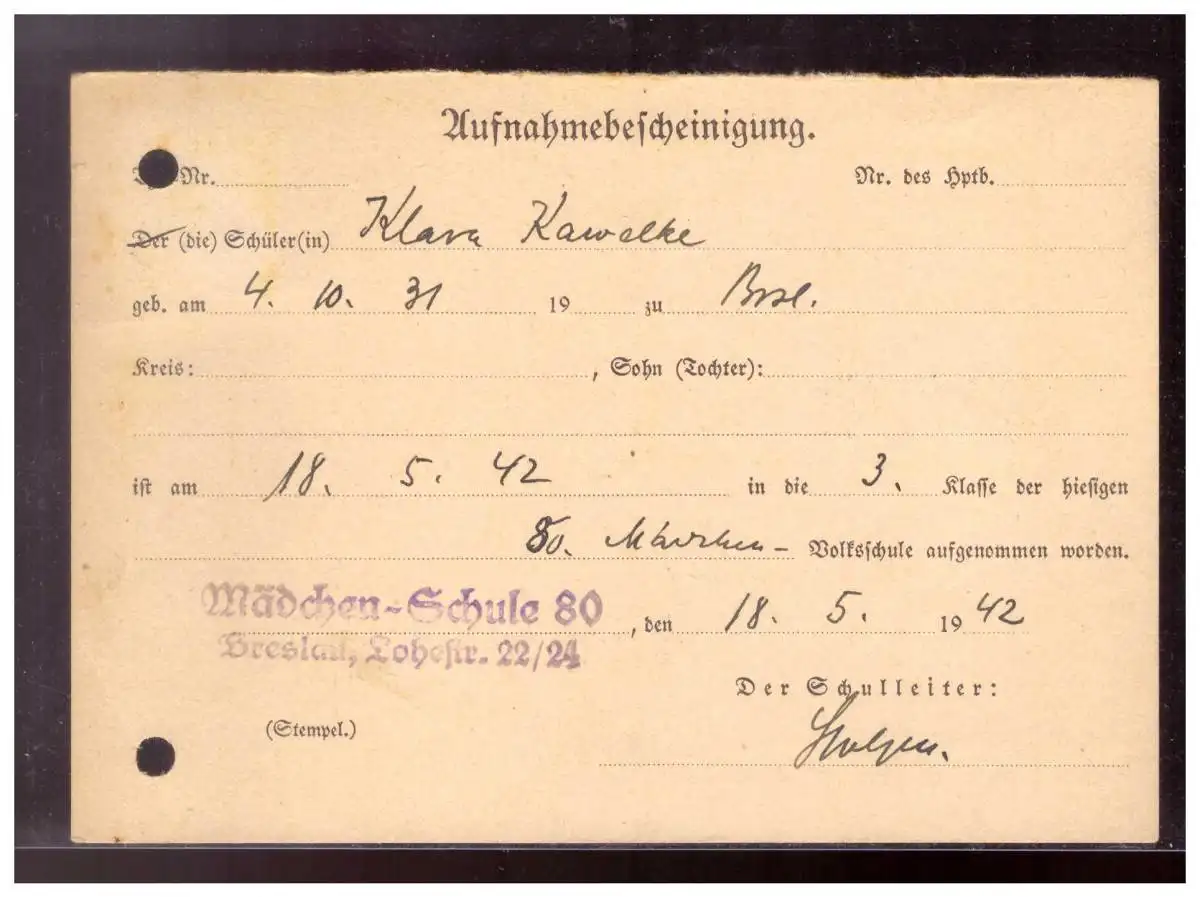 Aufnahmebescheinigung.
Nr. Nr. des Hptb.
Der (die) Schüler(in) Klara Kawelke
geb. am 4. 10. 31 19 zu Brsl.
Kreis: , Sohn (Tochter):
ist am 18. 5. 42 in die 3. Klasse der hiesigen
80. Mädchen- Volksschule aufgenommen worden.
Mädchen-Schule 80
, den 18. 5. 1942
Breslau, Lohestr. 22/24
Der Schulleiter:
(Stempel.)